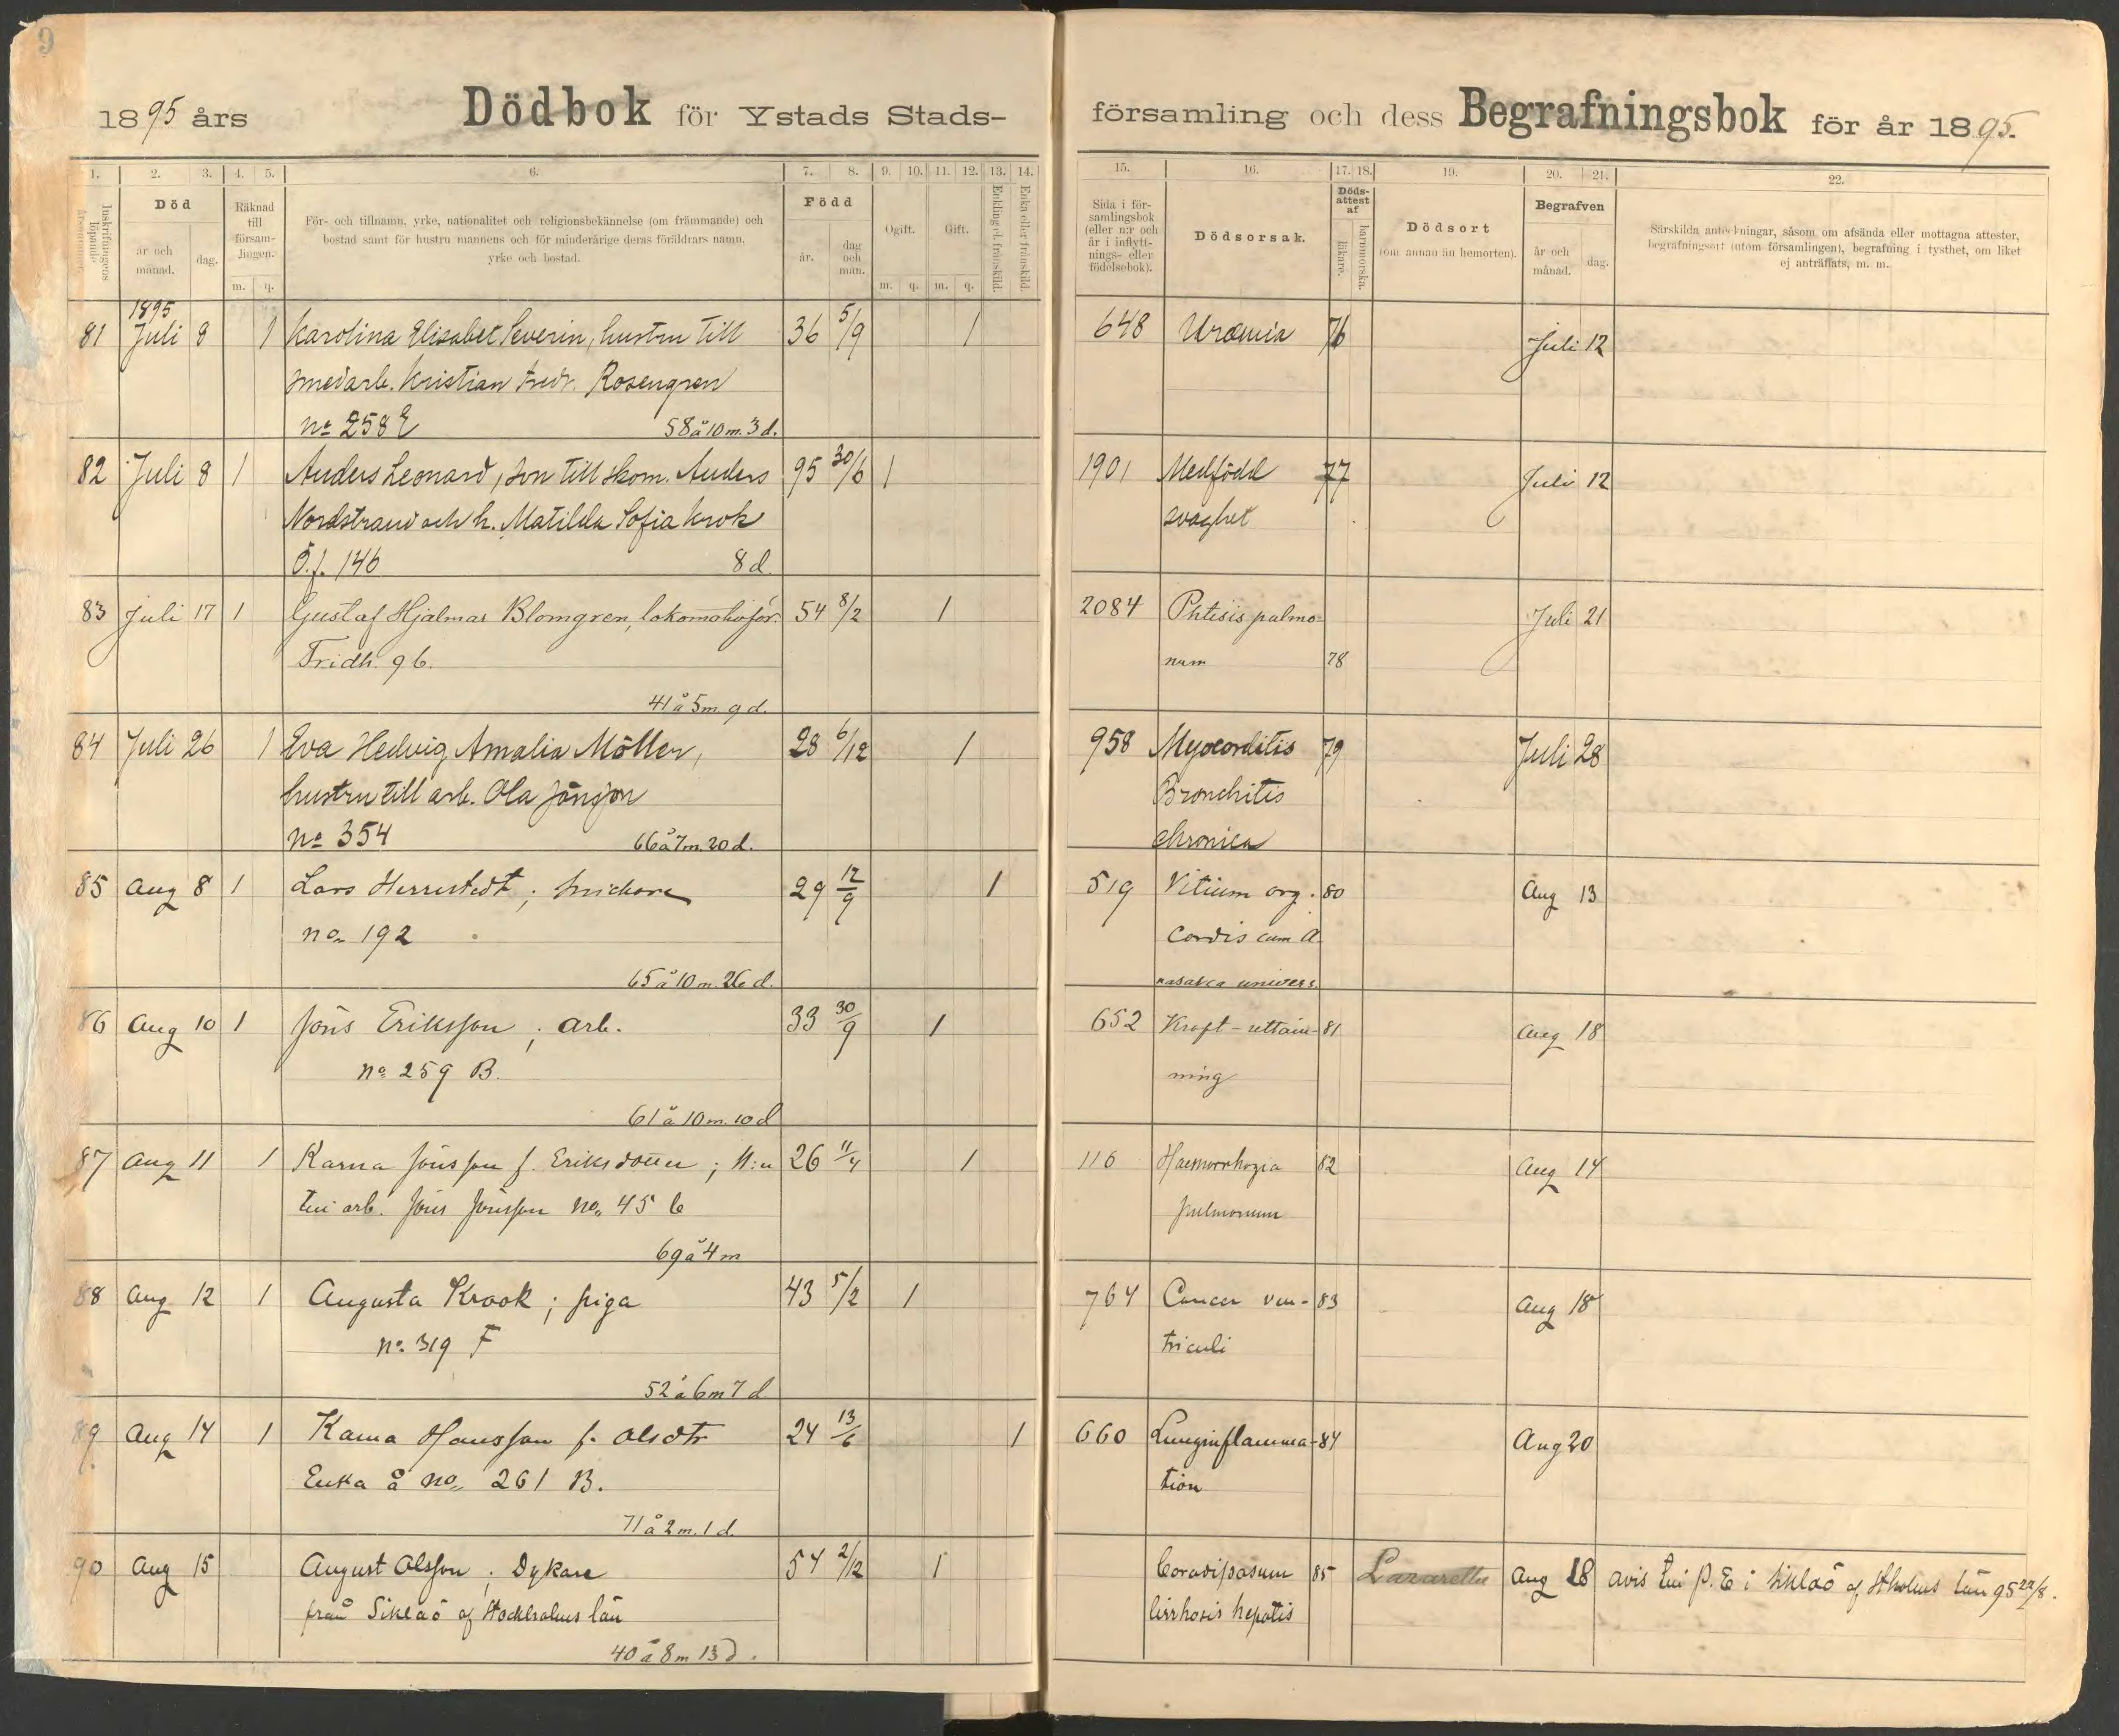 9
1895 års Dödbok för Ystads Stads-
församling och dess Begrafningsbok för år 1895.
1. 2. 3. 4. 5. 6. 7. 8. 9. 10. 11. 12. 13. 14.
15. 16. 17. 18. 19. 20. 21. 22.
Inskrifningens löpande årsnummer.
Död
år och månad.
dag.
Räknad till församlingen.
m. q.
För- och tillnamn, yrke, nationalitet och religionsbekännelse (om främmande) och
bostad samt för hustru mannens och för minderårige deras föräldrars namn,
yrke och bostad.
Född
år.
dag och mån.
Ogift.
Gift.
m. q. m. q.
Enkling el. frånskild.
Enka eller frånskild.
Sida i för-
samlingsbok
(eller n:r och
år i inflytt-
nings- eller
födelsebok).
Dödsorsak.
Döds-
attest
af
läkare.
barnmorska.
Dödsort
(om annan än hemorten).
Begrafven
år och månad.
dag.
Särskilda anteckningar, såsom om afsända eller mottagna attester,
begrafningsort (utom församlingen), begrafning i tysthet, om liket
ej anträffats, m. m.
1895
81 Juli 8 1 Karolina Elisabet Severin, hustru till 36 5/9 1 648 Uræmia 76 Juli 12
smedarb. Kristian Fredr. Rosengren
No 258 E 58 å 10 m. 3 d.
82 Juli 8 1 Anders Leonard, son till skom. Anders 95 30/6 1 1901 Medfödd 77 Juli 12
Nordstrand och h. Matilda Sofia Krok svaghet
Ö.f. 146 8 d
83 Juli 17 1 Gustaf Hjalmar Blomgren, lokomotivför. 54 8/2 1 2084 Phtisis pulmo- Juli 21
Fridh. 9 b. num 78
41 å 5 m. 9 d.
84 Juli 26 1 Eva Hedvig Amalia Möller, 28 6/12 1 958 Myocorditis 79 Juli 28
hustru till arb. Ola Jönsson Bronchitis
No 354 66 å 7 m. 20 d. chronica
85 Aug 8 1 Lars Herrestedt; Snickare 29 12/9 1 519 Vitium org. 80 Aug 13
no 192 Cordis cum A-
65 å 10 m. 26 d. nasarca univers.
86 Aug 10 1 Jöns Eriksson; arb. 33 30/9 1 652 Kraft-uttöm- 81 Aug 18
no 259 B. ning
61 å 10 m. 10 d
87 Aug 11 1 Karna Jönsson f. Eriksdotter; H:u 26 11/4 1 116 Haemorrhagia 82 Aug 14
till arb. Jöns Jönsson No 45 b pulmonum
69 å 4 m
88 Aug 12 1 Augusta Krook; piga 43 5/2 1 764 Cancer ven- 83 Aug 18
no. 319 F triculi
52 å 6 m 7 d
89 Aug 14 1 Karna Hansson f. Olsdtr 24 13/6 1 660 Lunginflamma- 84 Aug 20
Enka å no 261 B. tion
71 å 2 m. 1 d.
90 Aug 15 August Olsson; Dykare 54 2/12 1 Coradiposum 85 Lazarettet Aug 18 avis till P.E i Sikla ö af Stholms län 95 22/8.
från Sikla ö af Stockholms län Cirrhosis hepatis
40 å 8 m 13 d.